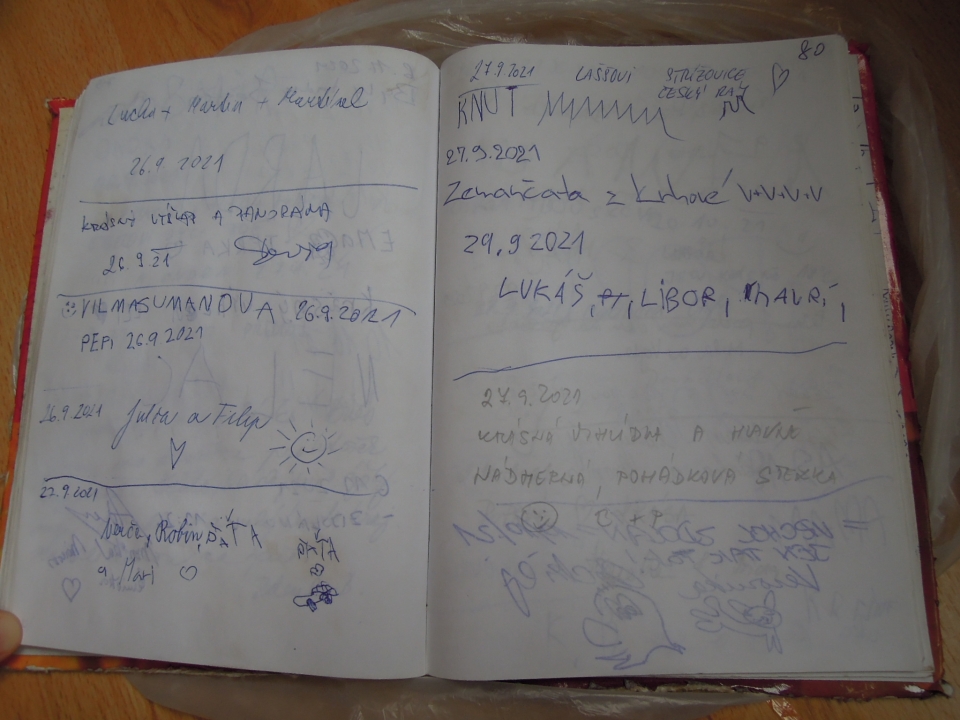 Lucka + Martin +
26.9.2021
KRÁSNÝ VÝŠLAP A PANORAMA
26.9.21
VILMA SUMANOVA 26.9.2021
PEPI 26.9.2021
26.9.2021 Julča a Filip
27.9.2021
Robin, BÁŤA
a Maxi
BÁŤA
80
27.9.2021 LAŠŠOVI STŘÍŽOVICE
ČESKÝ RÁJ
KNUT
27.9.2021
Zemančata z Krhové V+V+V+V
29.9.2021
LUKÁŠ, LIBOR,
27.9.2021
KRÁSNÁ VYHLÍDKA A HLAVNĚ
NÁDHERNÁ, POHÁDKOVÁ STEZKA
+ P